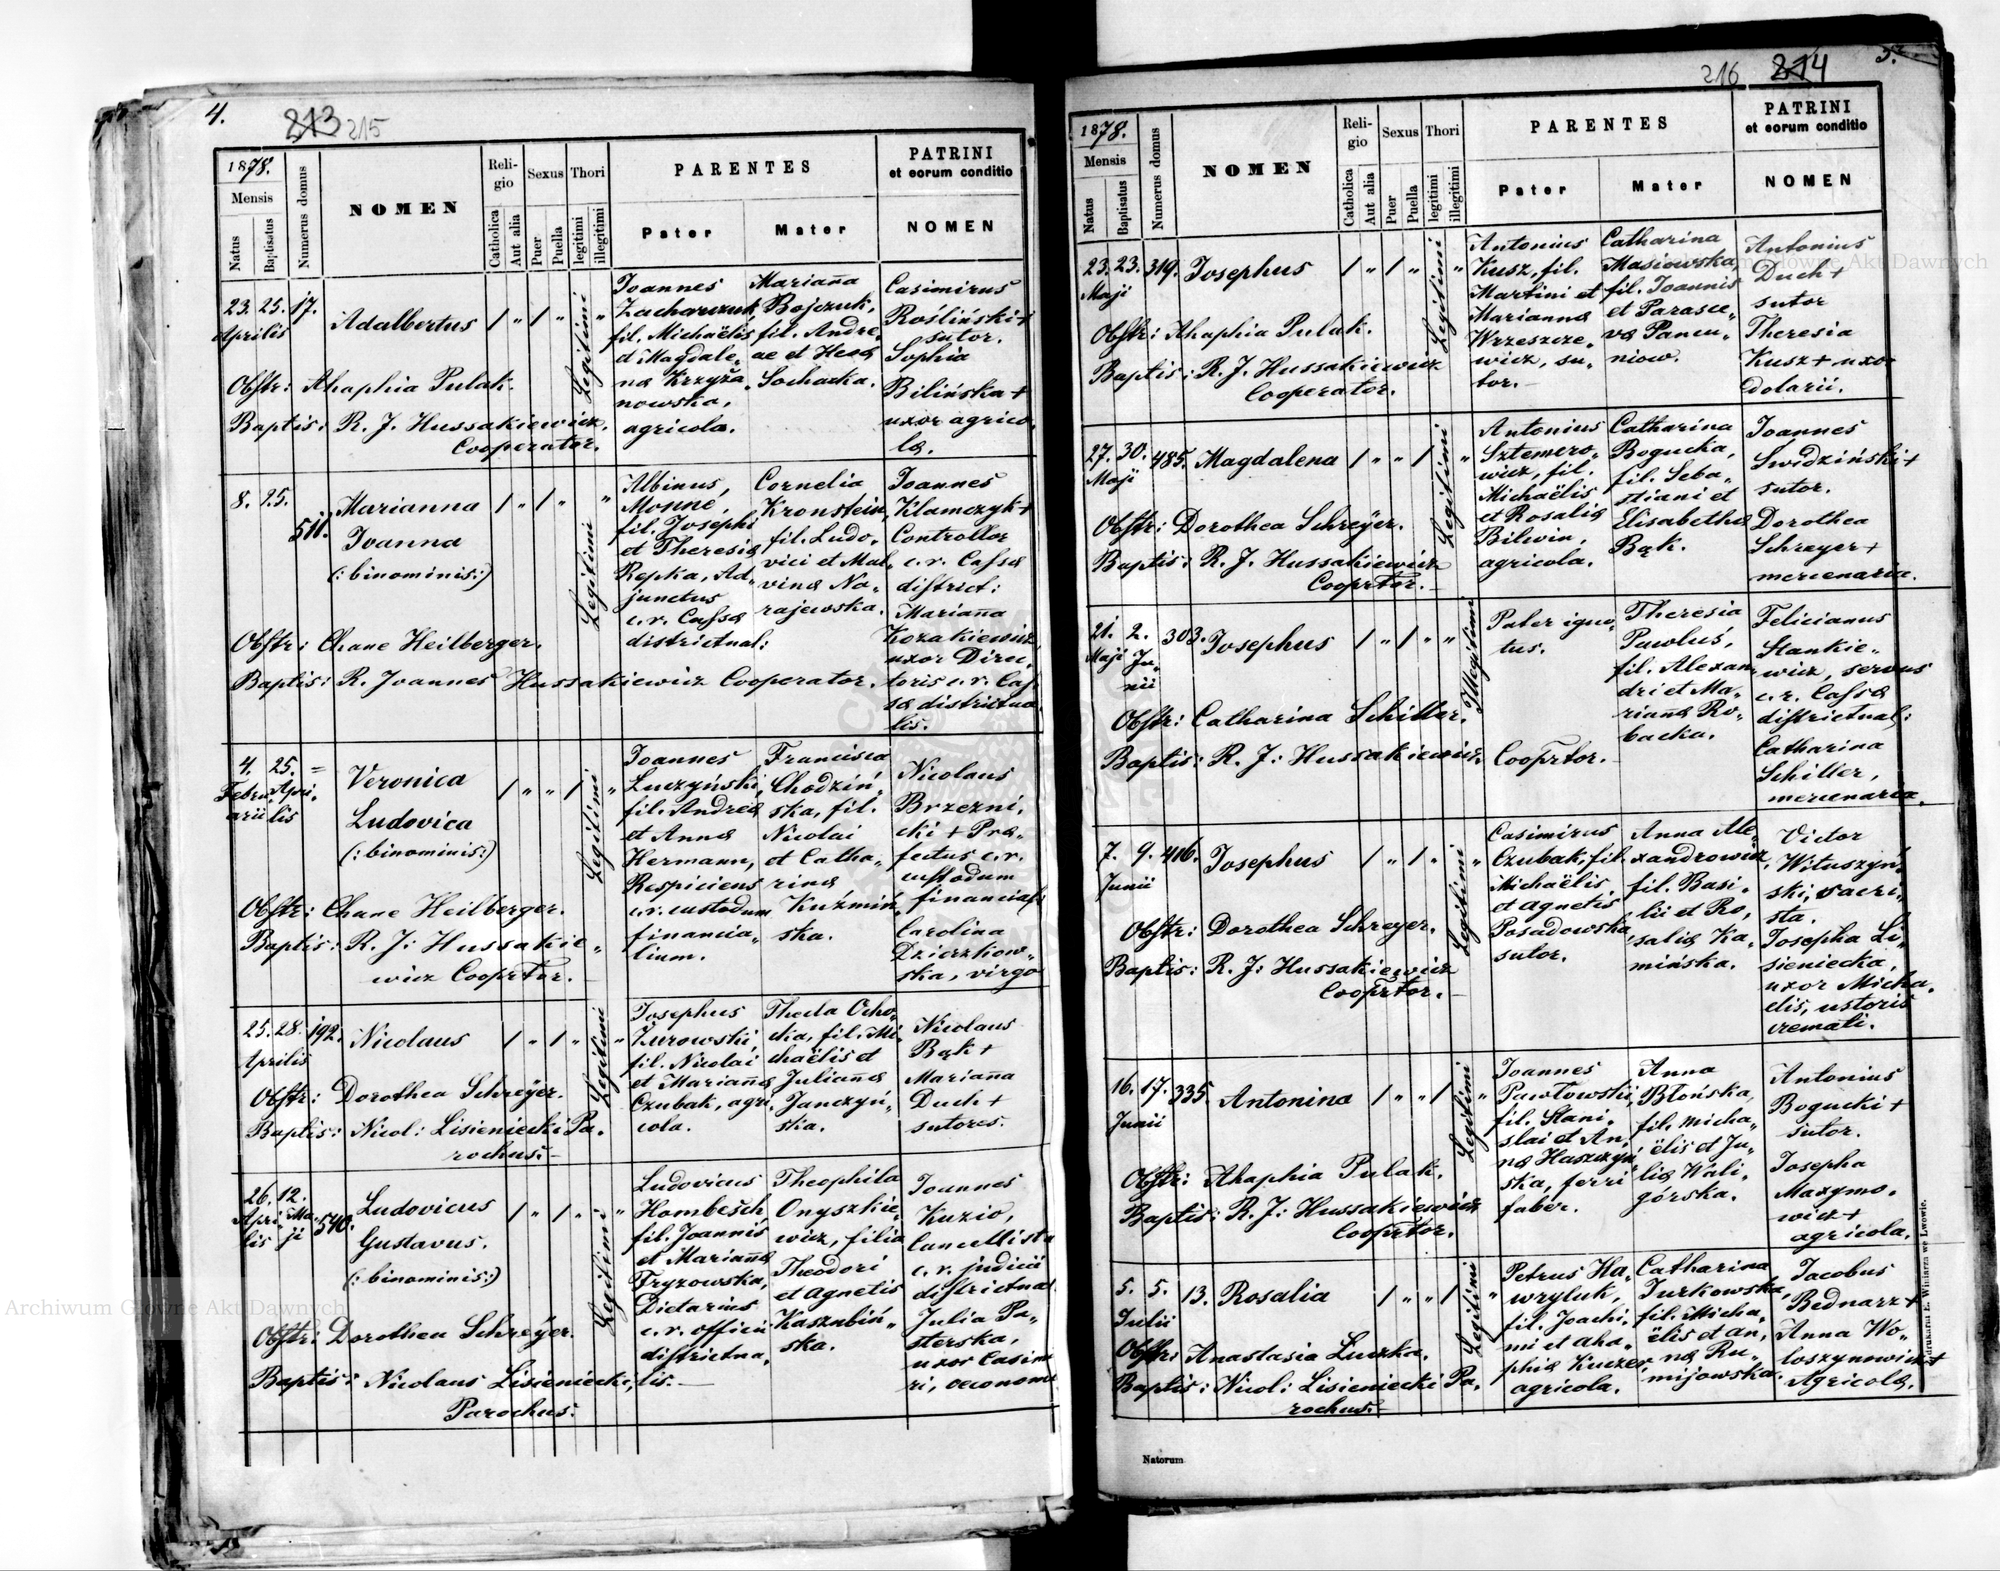 4.
213 215
1878.
Mensis
Natus
Baptisatus
Numerus domus
NOMEN
Religio
Catholica
Aut alia
Sexus
Puer
Puella
Thori
legitimi
illegitimi
PARENTES
Pater
Mater
PATRINI
et eorum conditio
NOMEN
23. 25. 17.
Aprilis
Adalbertus
Legitimi
Obstr: Ahaphia Pulak.
Baptis: R. J. Hussakiewicz.
Cooperator.
Joannes
Zacharczuk
fil. Michaëlis
et Magdale-
na Krzyża-
nowska,
agricola.
Marianna
Bojczuk,
fil. Andre-
ae et Hena
Sochacka.
Casimirus
Rośliński +
sutor.
Sophia
Bilińska +
uxor agrico-
la.
8. 25.
511.
Marianna
Joanna
(: binominis :)
Legitimi
Obstr: Chane Heilberger.
Baptis: R. Joannes Hussakiewicz Cooperator.
Albinus
Monné,
fil. Josephi
et Theresia
Repka, Ad-
junctus
c. r. Cassa
districtual:
Cornelia
Kronstein,
fil. Ludo-
vici et Mal-
vina Na-
rajewska.
Joannes
Klamczyk +
Controllor
c. r. Cassa
district:
Marianna
Kozakiewicz
uxor Direc-
toris c. r. Cas-
sa districtua-
lis.
4. 25. =
Febru- Apri-
arii lis
Veronica
Ludovica
(: binominis :)
Legitimi
Obstr: Chane Heilberger.
Baptis: R. J: Hussakie-
wicz Cooprtor.
Joannes
Luczyński,
fil. Andrea
et Anna
Hermann,
Respiciens
c. r. custodum
financia-
lium.
Francisca
Chodziń-
ska, fil.
Nicolai
et Catha-
rina
Kuźmiń-
ska.
Nicolaus
Brzezni-
cki + Pra-
fectus c. r.
custodum
financial:
Carolina
Dzierzkow-
ska, virgo
25. 28. 192.
Aprilis
Nicolaus
Legitimi
Obstr: Dorothea Schreÿer.
Baptis: Nicol: Lisieniecki Pa-
rochus.
Josephus
Żurowski,
fil. Nicolai
et Marianna
Czubak, agri-
cola.
Thecla Ocho-
cka, fil. Mi-
chaëlis et
Julianna
Janczyń-
ska.
Nicolaus
Bąk +
Marianna
Duch +
sutores.
26. 12.
Apri- Ma- 540.
lis ji
Ludovicus
Gustavus.
(: binominis :)
Legitimi
Obstr: Dorothea Schreÿer.
Baptis: Nicolaus Lisieniecki,
Parochus.
Ludovicus
Hombesch
fil. Joannis
et Marianna
Fryzowska,
Dietarius
c. r. officii
districtua-
lis.
Theophila
Onyszkie-
wicz, filia
Theodori
et Agnetis
Kaszubiń-
ska.
Joannes
Kuzio,
Cancellista
c. r. judicii
districtual
Julia Pa-
sterska,
uxor Casimi-
ri, oeconomi
216 214
5.
1878.
Mensis
Natus
Baptisatus
Numerus domus
NOMEN
Religio
Catholica
Aut alia
Sexus
Puer
Puella
Thori
legitimi
illegitimi
PARENTES
Pater
Mater
PATRINI
et eorum conditio
NOMEN
23. 23. 319.
Maji
Josephus
Legitimi
Obstr: Ahaphia Pulak.
Baptis: R. J. Hussakiewicz
Cooperator.
Antonius
Kusz, fil.
Martini et
Marianna
Wrzeszcze-
wicz, su-
tor.
Catharina
Masiowska,
fil. Joannis
et Parasce-
va Pancu-
niow.
Antonius
Duch +
sutor
Theresia
Kusz + uxor
dolarii.
27. 30. 485.
Maji
Magdalena
Legitimi
Obstr: Dorothea Schreÿer.
Baptis: R. J. Hussakiewicz
Cooprtor.
Antonius
Sztemero-
wicz, fil.
Michaëlis
et Rosalia
Bilwin,
agricola.
Catharina
Bogucka,
fil. Seba-
stiani et
Elisabetha
Bąk.
Joannes
Swidziński +
sutor.
Dorothea
Schreyer +
mercenaria.
21. 2. 303.
Maji Ju-
nii
Josephus
Illegitimi
Obstr: Catharina Schiller.
Baptis: R. J: Hussakiewicz Cooprtor.
Pater igno-
tus.
Theresia
Pawluś,
fil. Alexan-
dri et Ma-
rianna Ro-
backa.
Felicianus
Stankie-
wicz, servus
c. r. Cassa
districtual:
Catharina
Schiller,
mercenaria.
7. 9. 416.
Junii
Josephus
Legitimi
Obstr: Dorothea Schreyer.
Baptis: R. J: Hussakiewicz
Cooprtor.
Casimirus
Czubak, fil.
Michaëlis
et Agnetis
Posadowska,
sutor.
Anna Ale-
xandrowicz,
fil. Basi-
lii et Ro-
salia Ka-
mińska.
Victor
Wituszyń-
ski, sacri-
sta.
Josepha Li-
sieniecka,
uxor Micha-
elis, ustoris
cremati.
16. 17. 335.
Junii
Antonina
Legitimi
Obstr: Ahaphia Pulak.
Baptis: R. J: Hussakiewicz
Cooprtor.
Joannes
Pawłowski,
fil. Stani-
slai et An-
na Haszczyń-
ska, ferri
faber.
Anna
Błońska,
fil. Micha-
ëlis et Ju-
lia Wali-
górska.
Antonius
Bogucki +
sutor.
Josepha
Maxymo-
wicz +
agricola.
5. 5. 13.
Julii
Rosalia
Legitimi
Obstr: Anastasia Luczka.
Baptis: Nicol: Lisieniecki Pa-
rochus.
Petrus Ha-
wryluk,
fil. Joachi-
mi et Aha-
phia Kuczer,
agricola.
Catharina
Turkowska,
fil. Micha-
ëlis et An-
na Ru-
mijowska.
Jacobus
Bednarz +
Anna Wo-
loszynowicz +
Agricola.
Natorum
Z drukarni E. Winiarza we Lwowie.
Archiwum Główne Akt Dawnych
Archiwum Główne Akt Dawnych